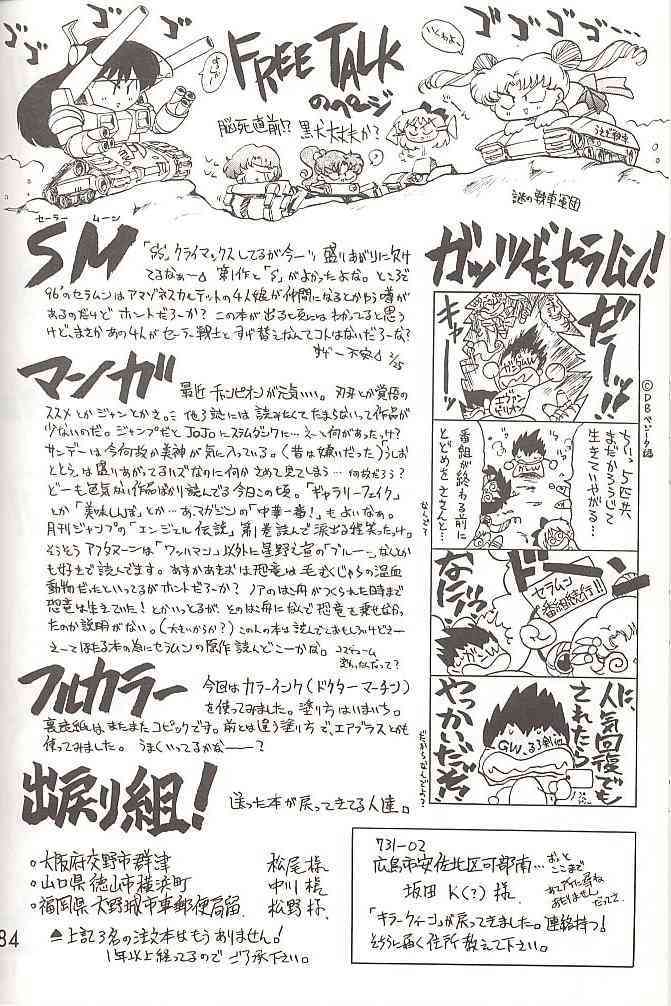 ゴゴゴ
ゴゴゴ
FREE TALK
のページ
脳死直前!? 黒犬大丈夫か?
いくわよ〜
謎の戦車軍団
セーラー ムーン
SM
「SS」クライマックスしてるが今一ツ盛りあがりに欠け
てるなぁ〜 第1作と「S」がよかったよな。ところで
96'のセラムンはアマゾネスカルテットの4人娘が仲間になるとかゆう噂が
あるのだけど ホントだろーか? この本が出る頃にはわかってると思う
けど、まさかあの4人がセーラー戦士とすげ替えなんてコトはないだろーな?
不安 2/25
マンガ
最近チャンピオンが元気いい。刃牙とか覚悟の
ススメとかジャンとかさ。他3誌には読みたくてたまらないって作品が
少ないのだ。ジャンプだとJoJoにスラムダンクに…え〜と何があったっけ?
サンデーは今何故か美神が気に入っている。(昔は嫌いだった)うしお
ととらは盛りあがってるハズなのに何かさめて見てしまう…何故だろう?
どーも色気がない作品ばかり読んでる今日この頃。「ギャラリーフェイク」
とか「美味しんぼ」とか…あマガジンの「中華一番!」もよいなぁ。
月刊ジャンプの「エンジェル伝説」第1巻読んで涙出る程笑ったっけ。
そうそうアフタヌーンは「ワッハマン」以外に星野之宣の「ブルー
も好きで読んでます。あすかあきおは恐竜は毛むくじゃらの温血
動物だったといってるがホントだろーか? ノアのはこ舟がつくられた時まで
恐竜は生きていた!とかいっとるが、そのはこ舟になんで恐竜を乗せなかっ
たのか説明がない。(大きいからか?)この人の本は読んでておもしろいけどさー
え〜てほたる本の為にセラムンの原作読んどこーかな。
フルカラー
今回はカラーインク(ドクターマーチン)
を使ってみました。塗り方はいまいち。
裏表紙はまたまたコピックです。前とは違う塗り方で、エアブラスとかも
使ってみました。うまくいってるかな―――?
出戻り組!
送った本が戻ってきてる人達。
○大阪府交野市郡津 松尾様
○山口県徳山市横浜町 中川様
○福岡県大野城市東郵便局留 松野様
▲上記3名の注文本はもうありません!
1年以上経ってるのでご了承下さい。
84
ガッツだセラムン!
©DBベジータ編
ゼーッ!!
キャー
ガンダムW
エヴァンゲリオン
ちいっ5匹共
まだかろうじて
生きていやがる…
番組が終わる前に
とどめをささんと…
なんで?
ドーン
セラムン
番組続行!!
なにィッ!
人気回復でも
されたら
やっかいだぞ!
GW、るろ剣他
731-02
広島市安佐北区可部南…
おっと
ここまで
坂田K(?)様
「キラークィーン」が戻ってきました。連絡待つ!
そちらに届く住所教えて下さい。